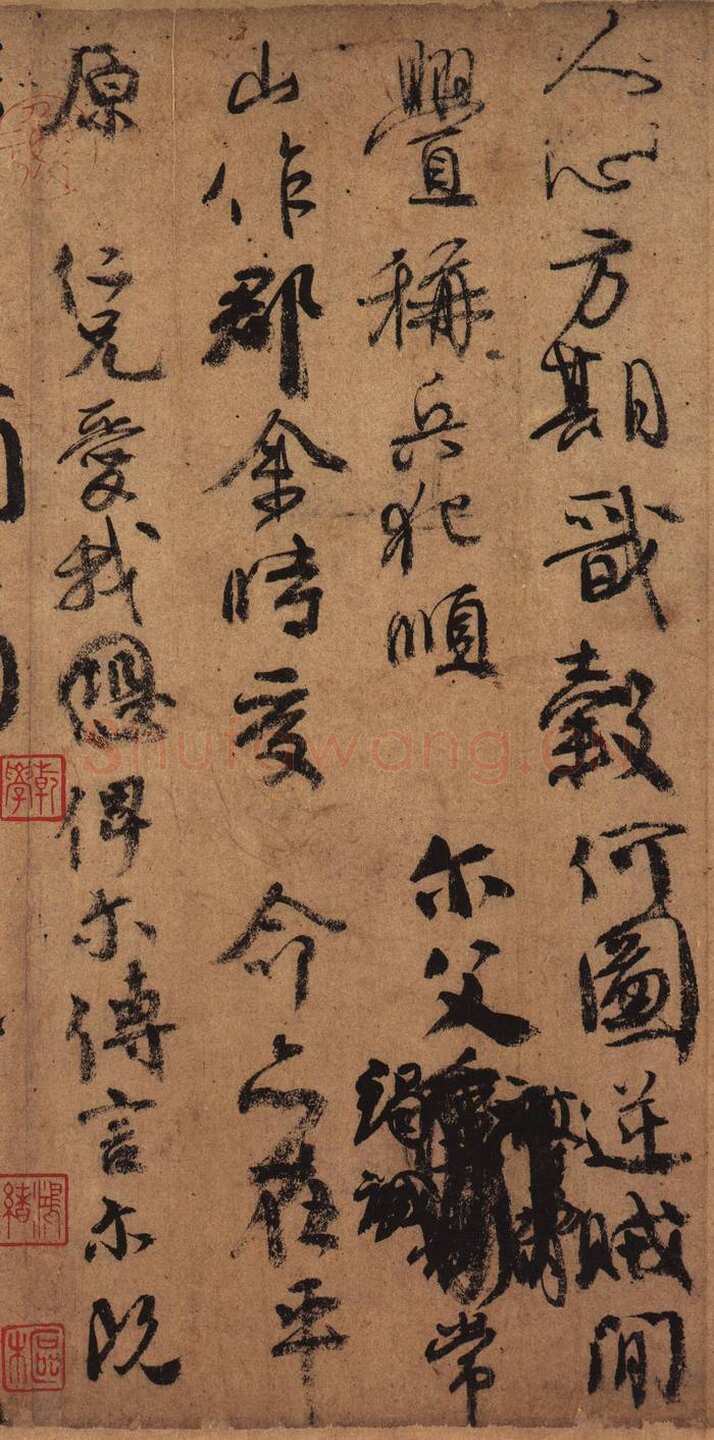 人心方期戩穀何圖逆賊間
釁稱兵犯順 尓父竭誠常
山作郡余時受 命亦在平
原 仁兄愛我俾尓傳言尓既
乾學
鴻緒
shufawang.cn